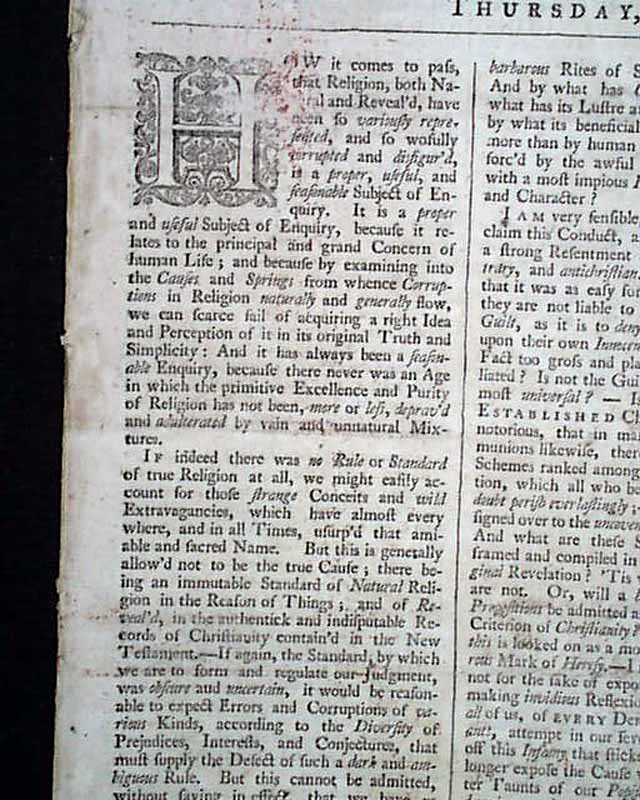 THURSDAY,
HOW it comes to paſs,
that Religion, both Na-
tural and Reveal'd, have
been ſo variouſly repre-
ſented, and ſo wofully
corrupted and disfigur'd,
is a proper, uſeful, and
ſeaſonable Subject of En-
quiry. It is a proper
and uſeful Subject of Enquiry, becauſe it re-
lates to the principal and grand Concern of
human Life; and becauſe by examining into
the Cauſes and Springs from whence Corrup-
tions in Religion naturally and generally flow,
we can ſcarce fail of acquiring a right Idea
and Perception of it in its original Truth and
Simplicity: And it has always been a ſeaſon-
able Enquiry, becauſe there never was an Age
in which the primitive Excellence and Purity
of Religion has not been, more or leſs, deprav'd
and adulterated by vain and unnatural Mix-
tures.
IF indeed there was no Rule or Standard
of true Religion at all, we might eaſily ac-
count for thoſe ſtrange Conceits and wild
Extravagancies, which have almoſt every
where, and in all Times, uſurp'd that ami-
able and ſacred Name. But this is generally
allow'd not to be the true Cauſe; there be-
ing an immutable Standard of Natural Reli-
gion in the Reaſon of Things; and of Re-
veal'd, in the authentick and indiſputable Re-
cords of Chriſtianity contain'd in the New
Teſtament.—If again, the Standard, by which
we are to form and regulate our Judgment,
was obſcure and uncertain, it would be reaſon-
able to expect Errors and Corruptions of va-
rious Kinds, according to the Diverſity of
Prejudices, Intereſts, and Conjectures, that
muſt ſupply the Defect of ſuch a dark and am-
biguous Rule. But this cannot be admitted,
without ſaying in effect, that we have
barbarous Rites of S
And by what has
what has its Luſtre a
by what its beneficial
more than by human
forc'd by the awful
with a moſt impious
and Character?
I AM very ſenſible,
claim this Conduct, a
a ſtrong Reſentment
trary, and antichriſtian.
that it was as eaſy for
they are not liable to
Guilt, as it is to deny
upon their own Innocen
Fact too groſs and pla
liated? Is not the Gui
moſt univerſal? — Is
ESTABLISHED C
notorious, that in ma
munions likewiſe, ther
Schemes ranked among
tion, which all who be
doubt periſh everlaſtingly;
ſigned over to the uncoven
And what are theſe S
framed and compiled in
ginal Revelation? 'Tis
are not. Or, will a
Propoſitions be admitted a
Criterion of Chriſtianity?
this is looked on as a mo
rous Mark of Hereſy.—I
not for the ſake of expo
making invidious Reflexio
all of us, of EVERY De
ant, attempt in our ſeve
off this Infamy that ſtick
longer expoſe the Cauſe
ter Taunts of our Popi